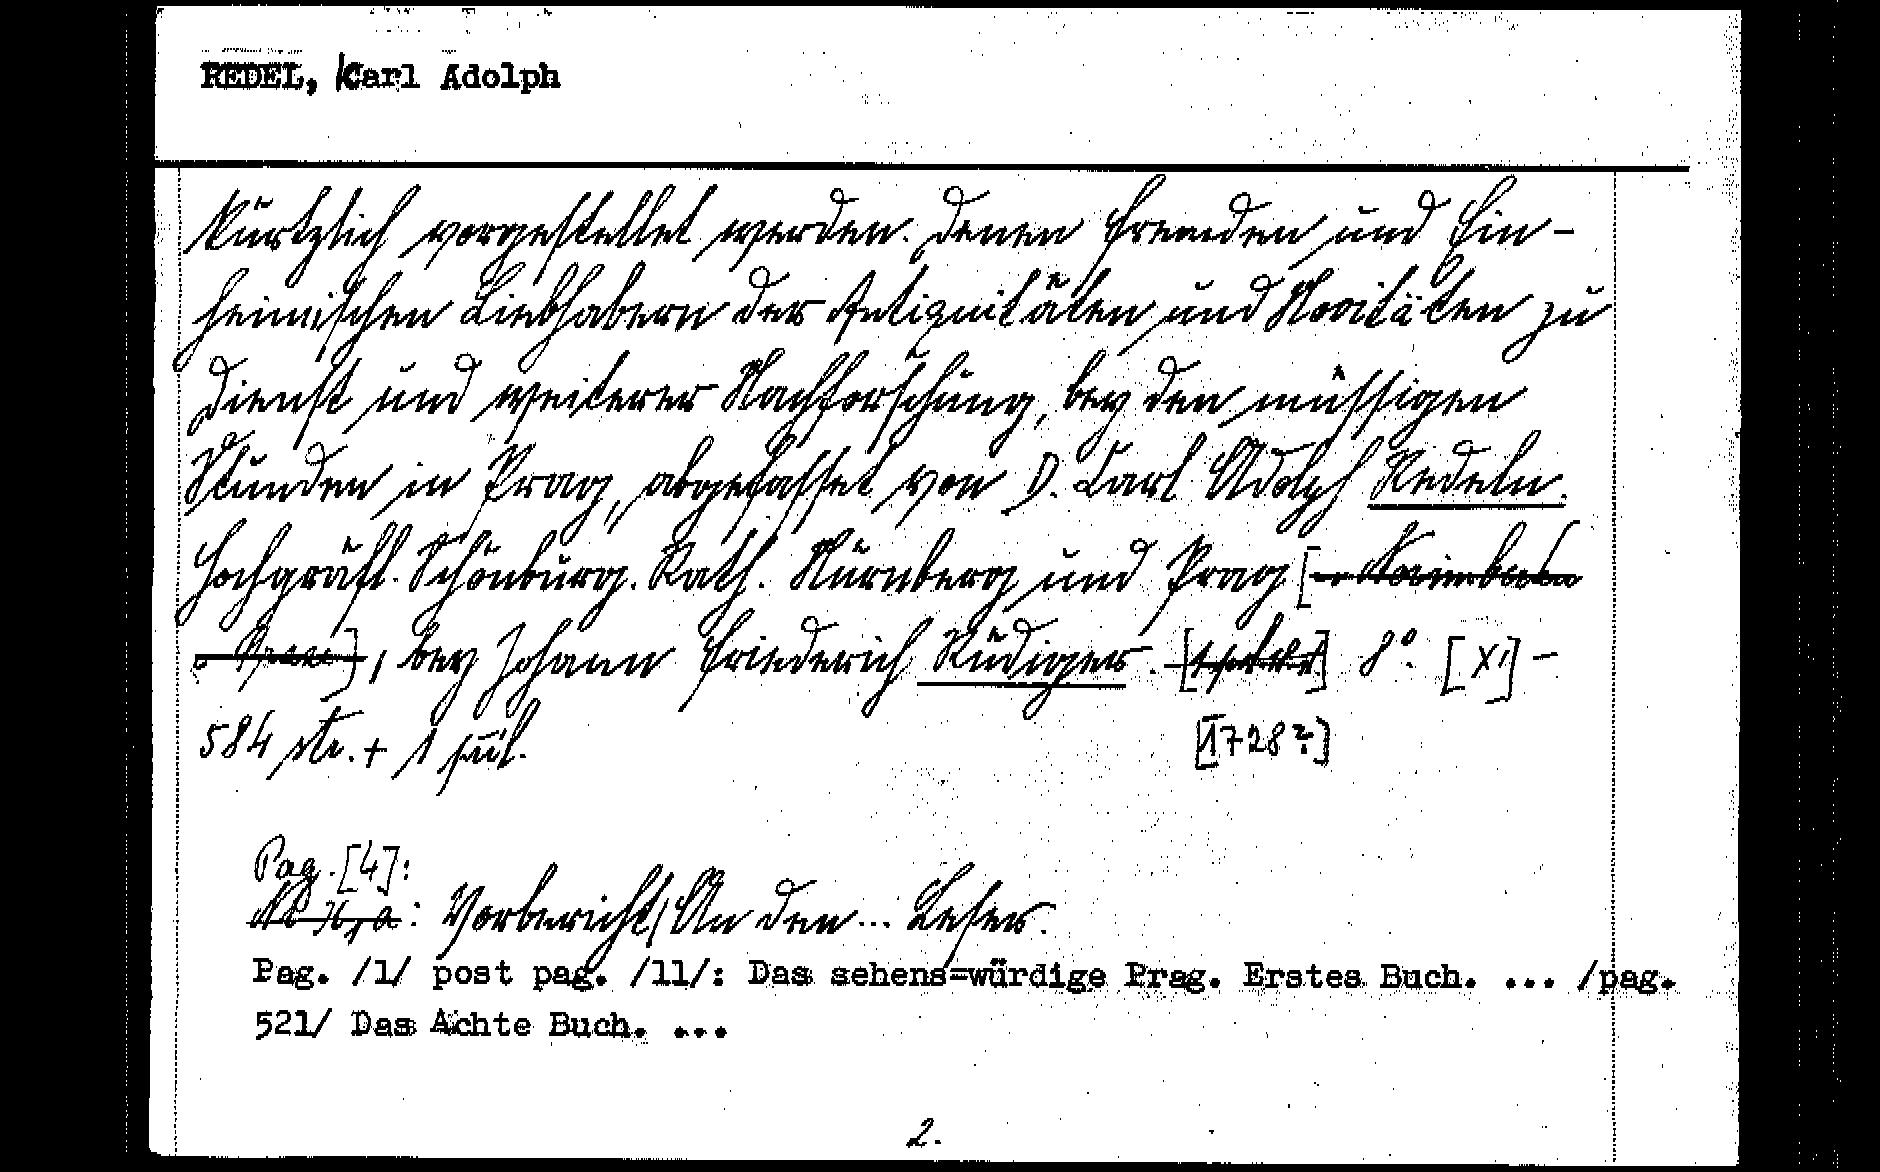 REDEL, Carl Adolph
kürtzlich vorgestellet werden. Denen Fremden und Ein-
heimischen Liebhabern der Antiquitäten und Novitäten zu
Dienst und weiterer Nachforschung, bey den müssigen
Stunden in Prag, abgefasset von D. Carl Adolph Redeln.
Hochgräfl. Schönburg. Rath. Nürnberg und Prag [
], bey Johann Friederich Rüdiger. [ ] 8°. [XI] -
584 str. + 1 příl. [1728?]
Pag. [4]:
: Vorbericht/ An den ... Leser.
Pag. /1/ post pag. /11/: Das sehens=würdige Prag. Erstes Buch. ... /pag.
521/ Das Achte Buch. ...
2.